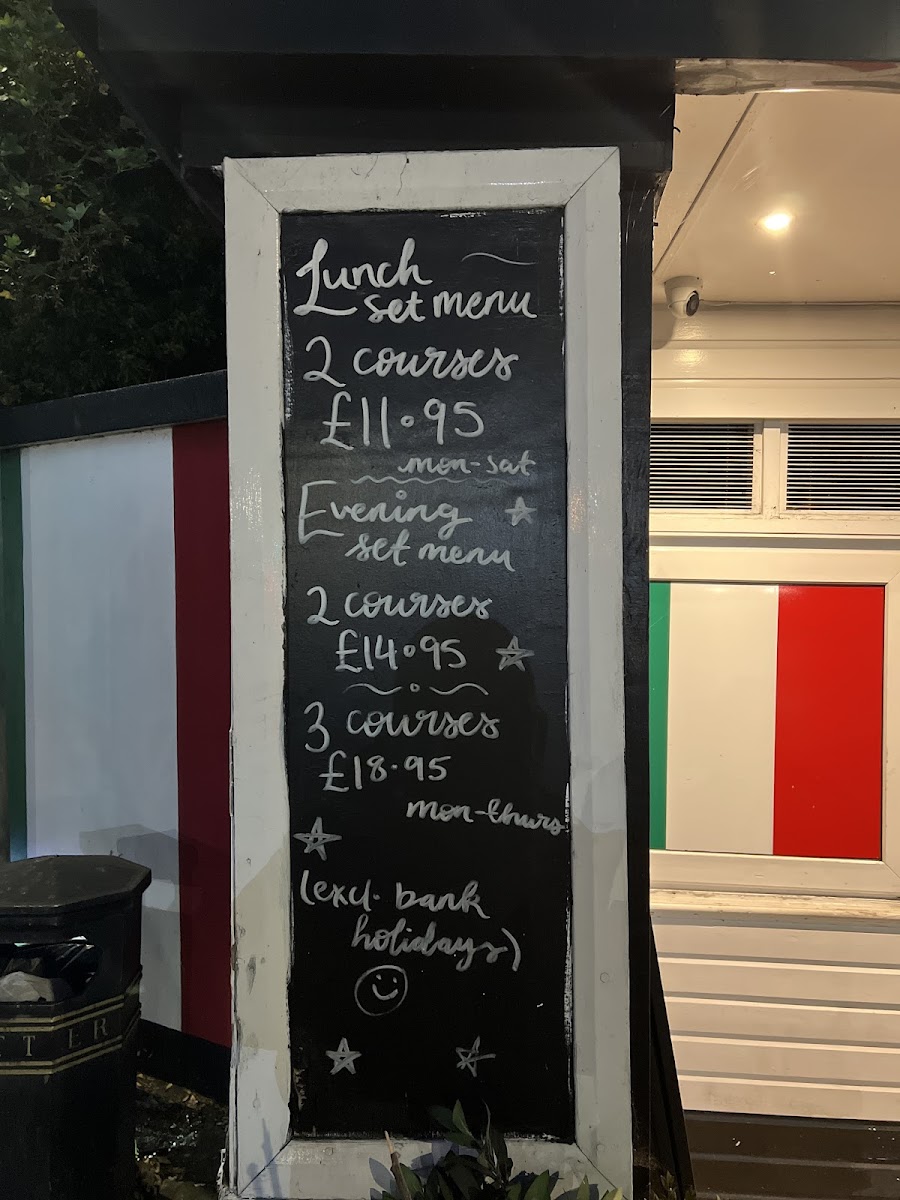 Lunch
set menu
2 courses
£11.95
mon-sat
Evening
set menu
2 courses
£14.95
3 courses
£18.95
mon-thurs
(excl. bank
holidays)
TTER